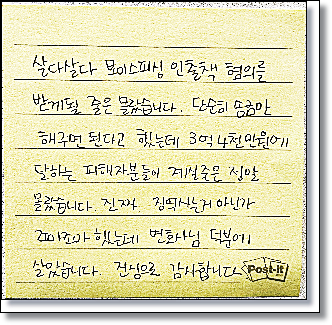 살다살다 보이스피싱 인출책 혐의를
받게될 줄은 몰랐습니다. 단순히 송금만
해주면 된다고 했는데 3억 4천만원에
달하는 피해자분들이 계실줄은 정말
몰랐습니다. 진짜 징역사는거 아닌가
조마조마 했는데 변호사님 덕분에
살았습니다. 진심으로 감사합니다
Post-it